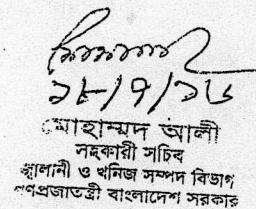 ১৮/৭/১৬
মোহাম্মদ আলী
সহকারী সচিব
জ্বালানী ও খনিজ সম্পদ বিভাগ
গণপ্রজাতন্ত্রী বাংলাদেশ সরকার